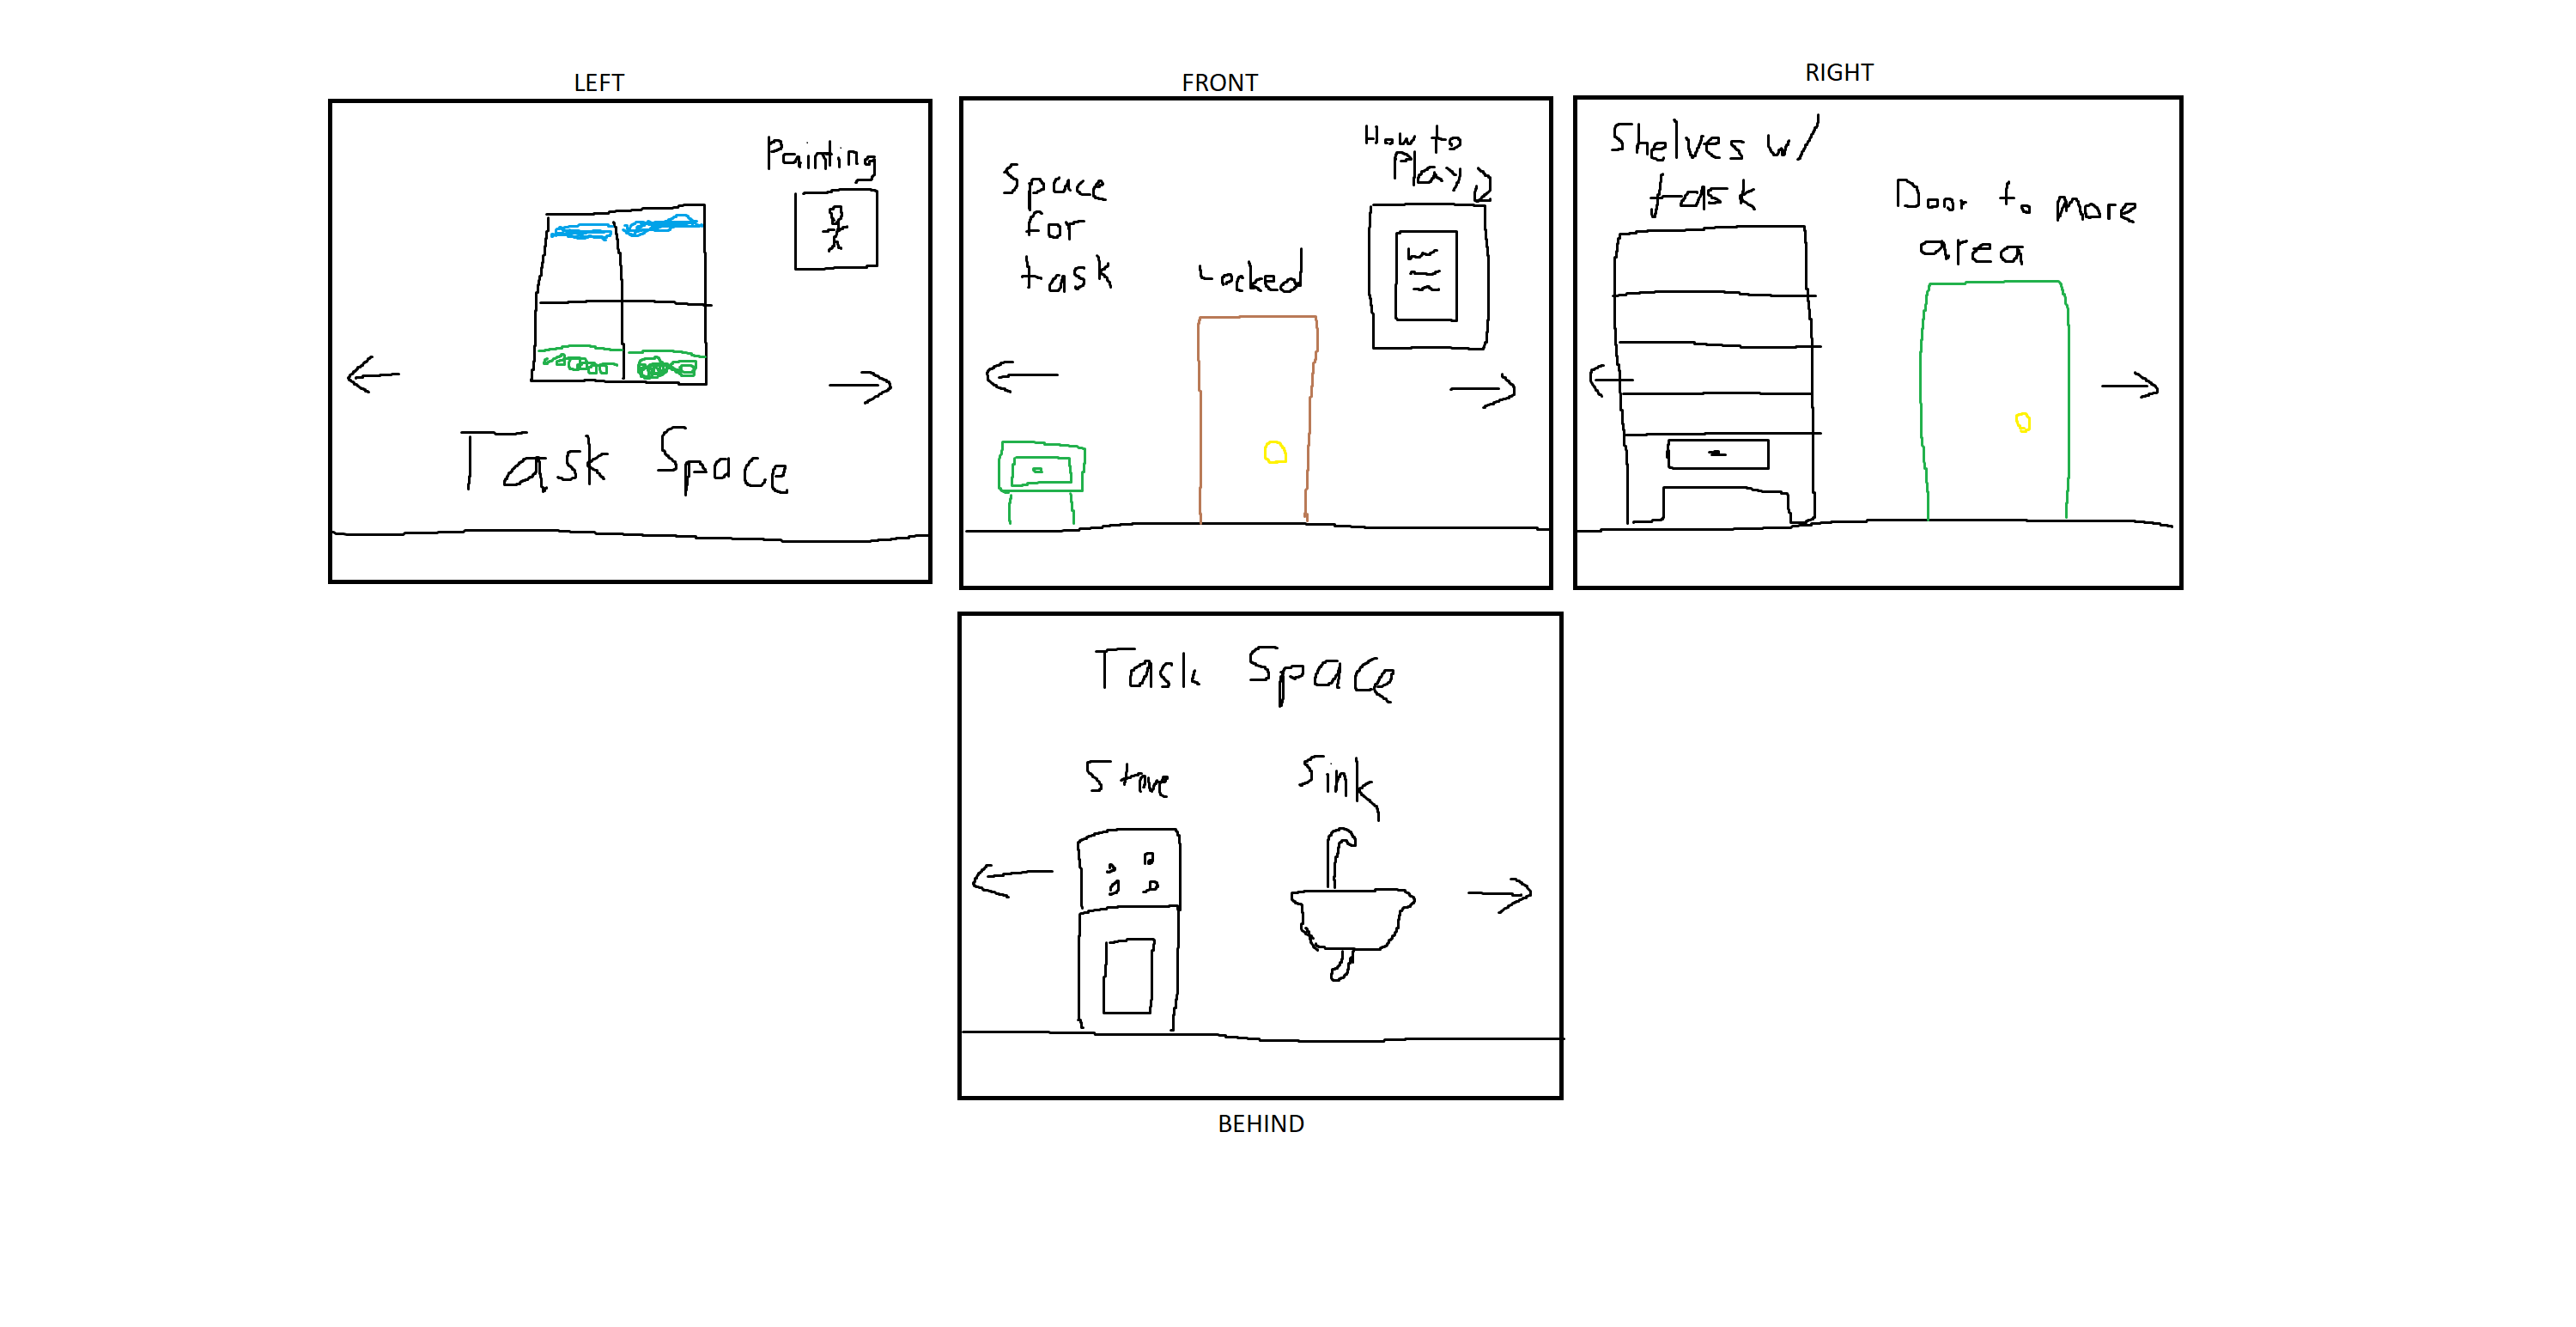 LEFT
Painting
Task Space
FRONT
Space
for
task
Locked
How to
Play
RIGHT
Shelves w/
task
Door to more
area
Task Space
Stove
Sink
BEHIND